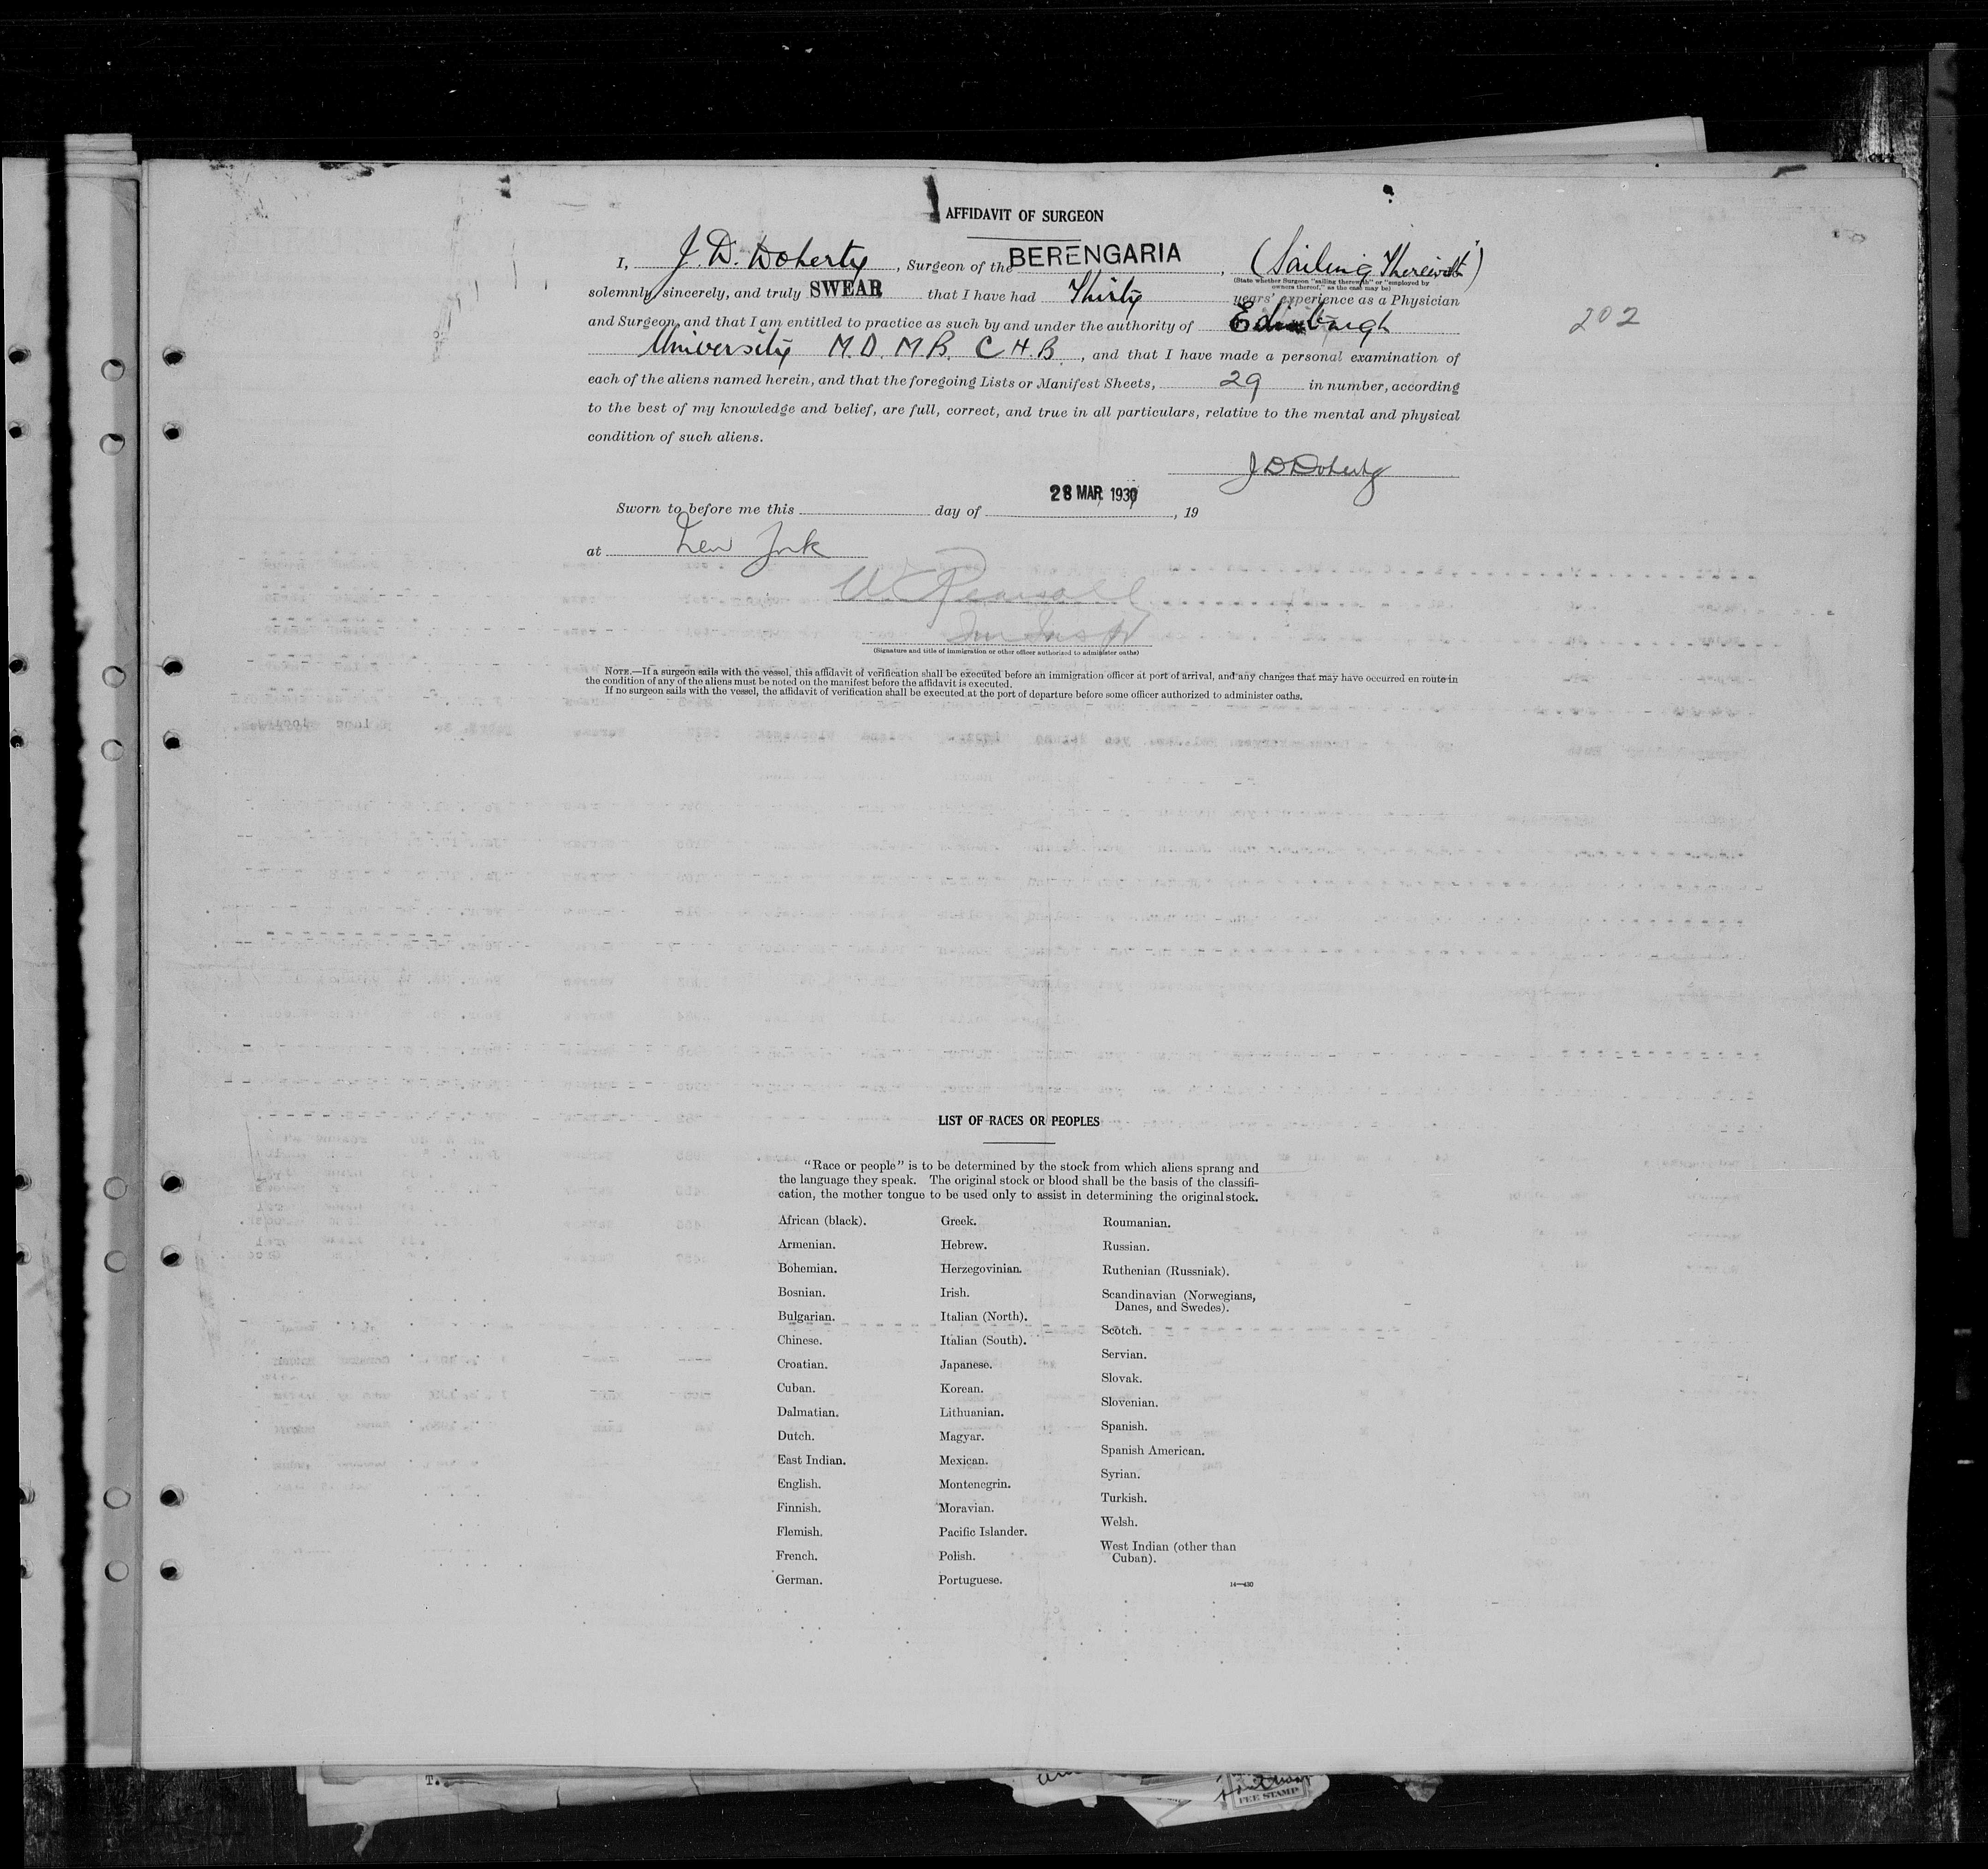 AFFIDAVIT OF SURGEON
I, J. D. Doherty, Surgeon of the BERENGARIA, (Sailing Therewith)
(State whether Surgeon "sailing therewith" or "employed by
owners thereof," as the case may be)
solemnly, sincerely, and truly SWEAR that I have had Thirty years' experience as a Physician
and Surgeon, and that I am entitled to practice as such by and under the authority of Edinburgh
202
University M.D. M.B. C H. B, and that I have made a personal examination of
each of the aliens named herein, and that the foregoing Lists or Manifest Sheets, 29 in number, according
to the best of my knowledge and belief, are full, correct, and true in all particulars, relative to the mental and physical
condition of such aliens.
J D Doherty
28 MAR 193
Sworn to before me this day of , 19
at New York
(Signature and title of immigration or other officer authorized to administer oaths)
NOTE.—If a surgeon sails with the vessel, this affidavit of verification shall be executed before an immigration officer at port of arrival, and any changes that may have occurred en route in
the condition of any of the aliens must be noted on the manifest before the affidavit is executed.
If no surgeon sails with the vessel, the affidavit of verification shall be executed at the port of departure before some officer authorized to administer oaths.
LIST OF RACES OR PEOPLES
"Race or people" is to be determined by the stock from which aliens sprang and
the language they speak. The original stock or blood shall be the basis of the classifi-
cation, the mother tongue to be used only to assist in determining the original stock.
African (black).
Armenian.
Bohemian.
Bosnian.
Bulgarian.
Chinese.
Croatian.
Cuban.
Dalmatian.
Dutch.
East Indian.
English.
Finnish.
Flemish.
French.
German.
Greek.
Hebrew.
Herzegovinian.
Irish.
Italian (North).
Italian (South).
Japanese.
Korean.
Lithuanian.
Magyar.
Mexican.
Montenegrin.
Moravian.
Pacific Islander.
Polish.
Portuguese.
Roumanian.
Russian.
Ruthenian (Russniak).
Scandinavian (Norwegians,
Danes, and Swedes).
Scotch.
Servian.
Slovak.
Slovenian.
Spanish.
Spanish American.
Syrian.
Turkish.
Welsh.
West Indian (other than
Cuban).
14—430
T.
FEE STAMP